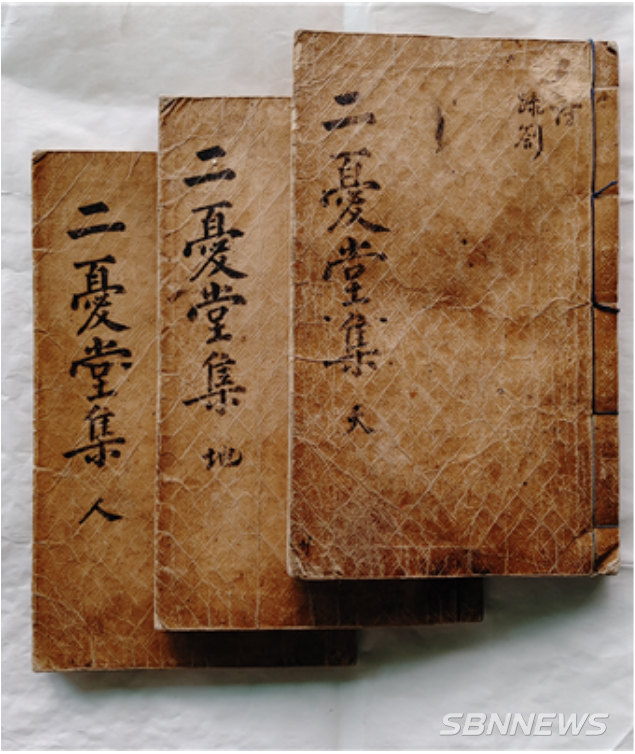 疏劄
二憂堂集 天
二憂堂集 地
二憂堂集 人
SBNNEWS